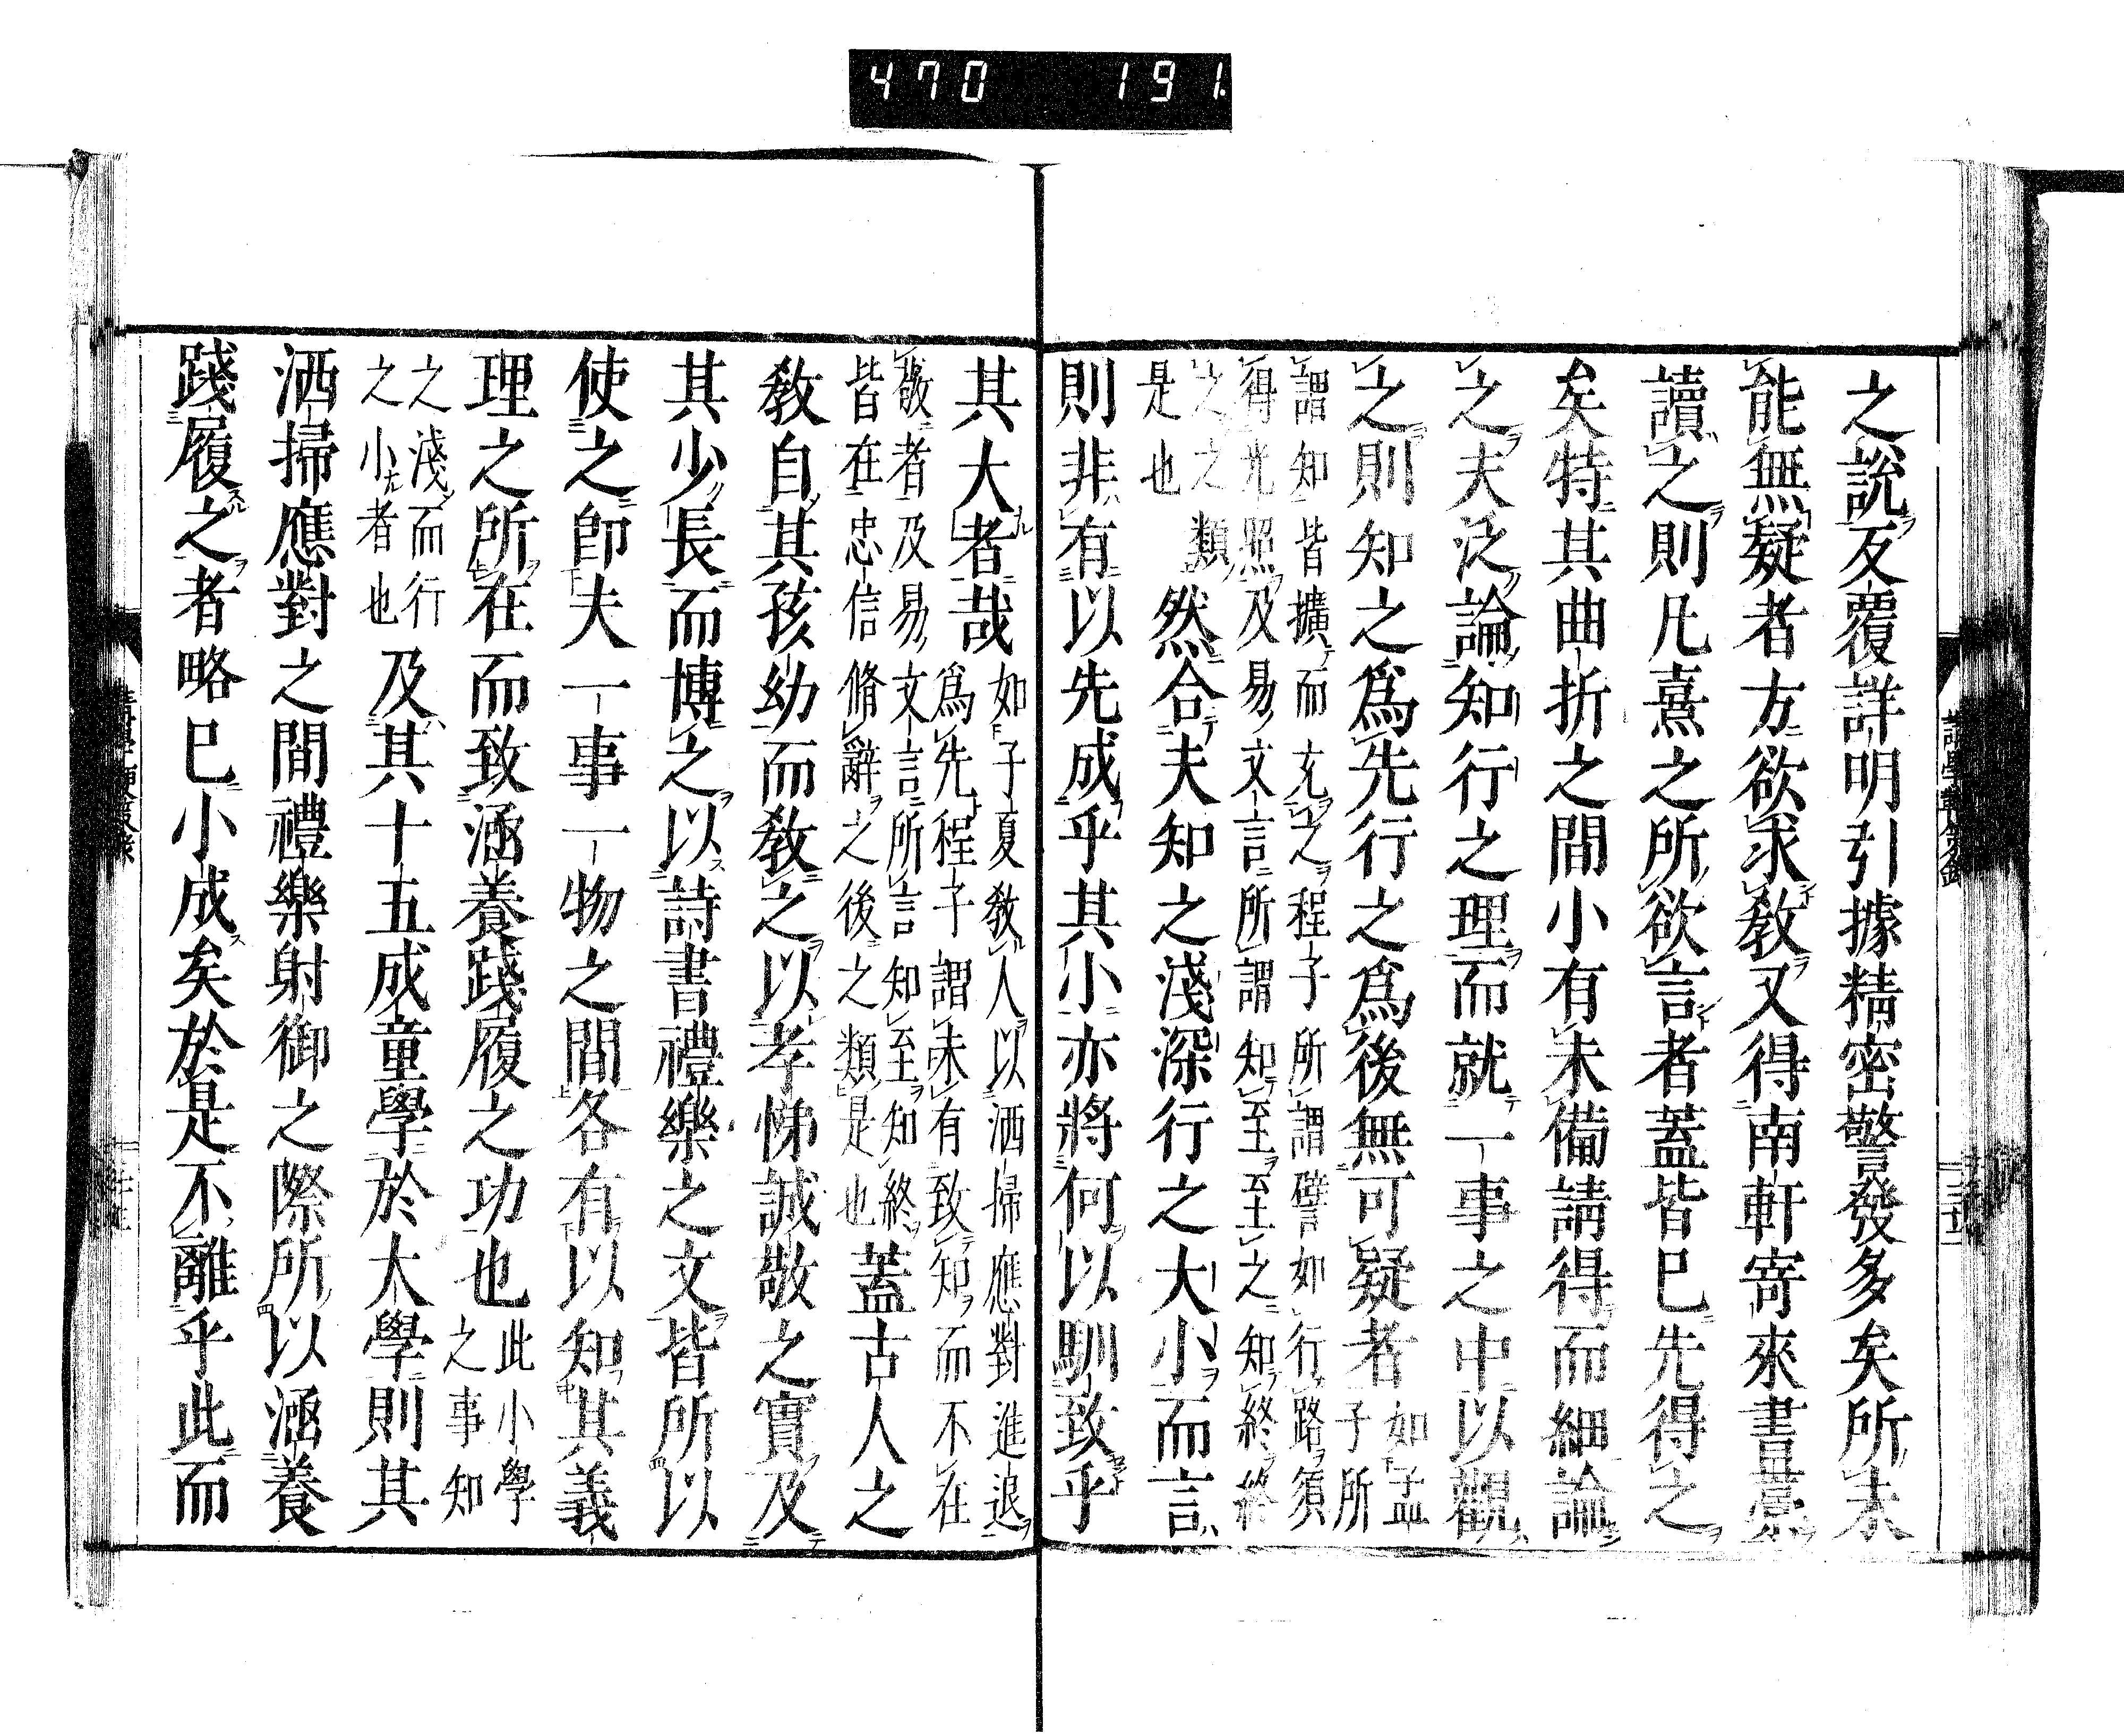 470 191
之說反覆詳明引據精密警發多矣所未
能無疑者方欲求教又得南軒寄來書藁
讀之則凡熹之所欲言者蓋皆已先得之
矣特其曲折之間小有未備請得而細論
之夫泛論知行之理而就一事之中以觀
之則知之為先行之為後無可疑者如孟子所
謂知皆擴而充之程子所謂譬如行路須
得光照及易文言所謂知至至之知終終
之之類
是也然合夫知之淺深行之大小而言
則非有以先成乎其小亦將何以馴致乎
其大者哉如子夏教人以洒掃應對進退
為先程子謂未有致知而不在
敬者及易文言所言知至知終
皆在忠信脩辭之後之類是也蓋古人之
教自其孩幼而教之以孝悌誠敬之實及
其少長而博之以詩書禮樂之文皆所以
使之卽夫一事一物之間各有以知其義
理之所在而致涵養踐履之功也此小學
之事知
之淺而行
之小者也及其十五成童學於大學則其
洒掃應對之間禮樂射御之際所以涵養
踐履之者略已小成矣於是不離乎此而